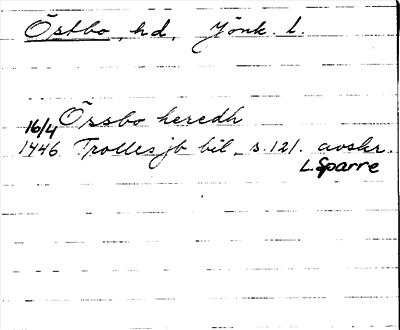 Östbo, hd, Jönk. l.
Össbo heredh
16/4
1446 Trolles jb bil. s. 121. avskr.
L. Sparre